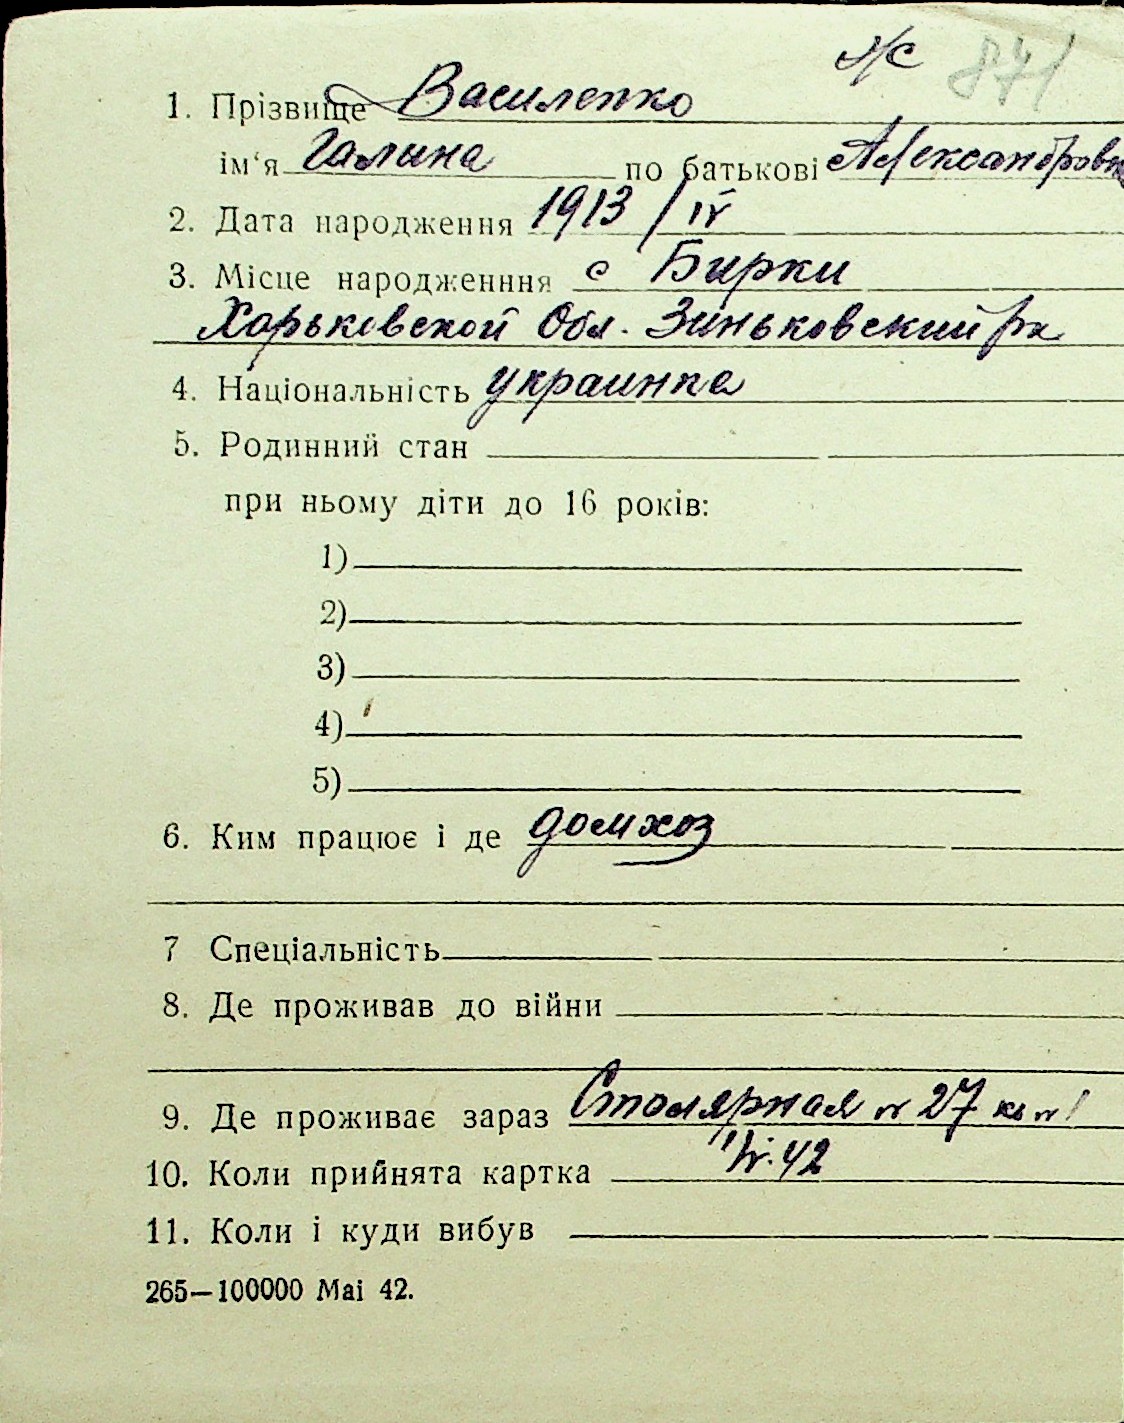 871
1. Прізвище Василенко
ім‘я Галина по батькові Александровна
2. Дата народження 1913 / IV
3. Місце народженння с Бирки
Харьковской Обл. Зиньковский рн
4. Національність украинка
5. Родинний стан
при ньому діти до 16 років:
1)
2)
3)
4)
5)
6. Ким працює і де домхоз
7 Спеціальність
8. Де проживав до війни
9. Де проживає зараз Столярная № 27 кв № 1
10. Коли прийнята картка 42
11. Коли і куди вибув
265—100000 Mai 42.